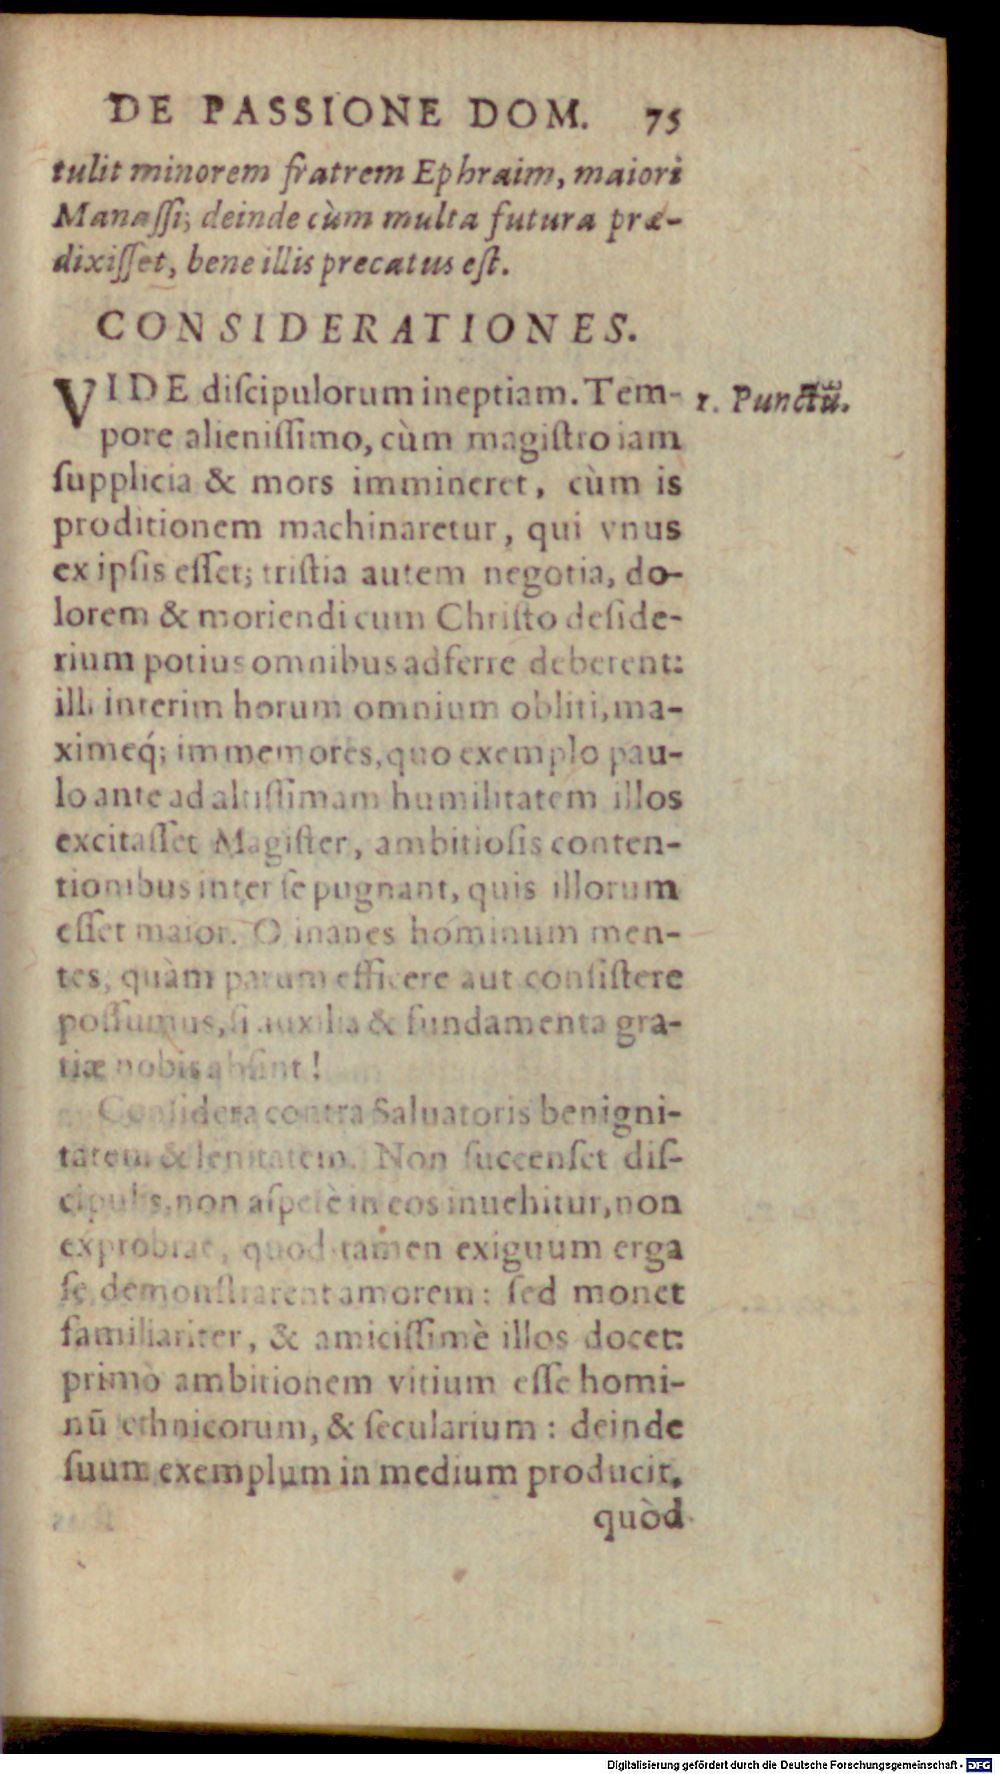 DE PASSIONE DOM. 75
tulit minorem fratrem Ephraim, maiori
Manaſſi; deinde cùm multa futura præ-
dixiſſet, bene illis precatus eſt.
CONSIDERATIONES.
VIDE diſcipulorum ineptiam. Tem-
1. Punctũ.
pore alieniſſimo, cùm magiſtro iam
ſupplicia & mors immineret, cùm is
proditionem machinaretur, qui vnus
ex ipſis eſſet; triſtia autem negotia, do-
lorem & moriendi cum Chriſto deſide-
rium potius omnibus adferre deberent:
illi interim horum omnium obliti, ma-
ximeq́; immemores, quo exemplo pau-
lo ante ad altiſſimam humilitatem illos
excitaſſet Magiſter, ambitioſis conten-
tionibus inter ſe pugnant, quis illorum
eſſet maior. O inanes hominum men-
tes, quàm parum efficere aut conſiſtere
poſſumus, ſi auxilia & fundamenta gra-
tiæ nobis abſint!
Conſidera contra Saluatoris benigni-
tatem & lenitatem. Non ſuccenſet diſ-
cipulis, non aſperè in eos inuehitur, non
exprobrat, quod tamen exiguum erga
ſe demonſtrarent amorem: ſed monet
familiariter, & amiciſſimè illos docet:
primò ambitionem vitium eſſe homi-
nũ ethnicorum, & ſecularium: deinde
ſuum exemplum in medium producit,
quòd
Digitalisierung gefördert durch die Deutsche Forschungsgemeinschaft - DFG